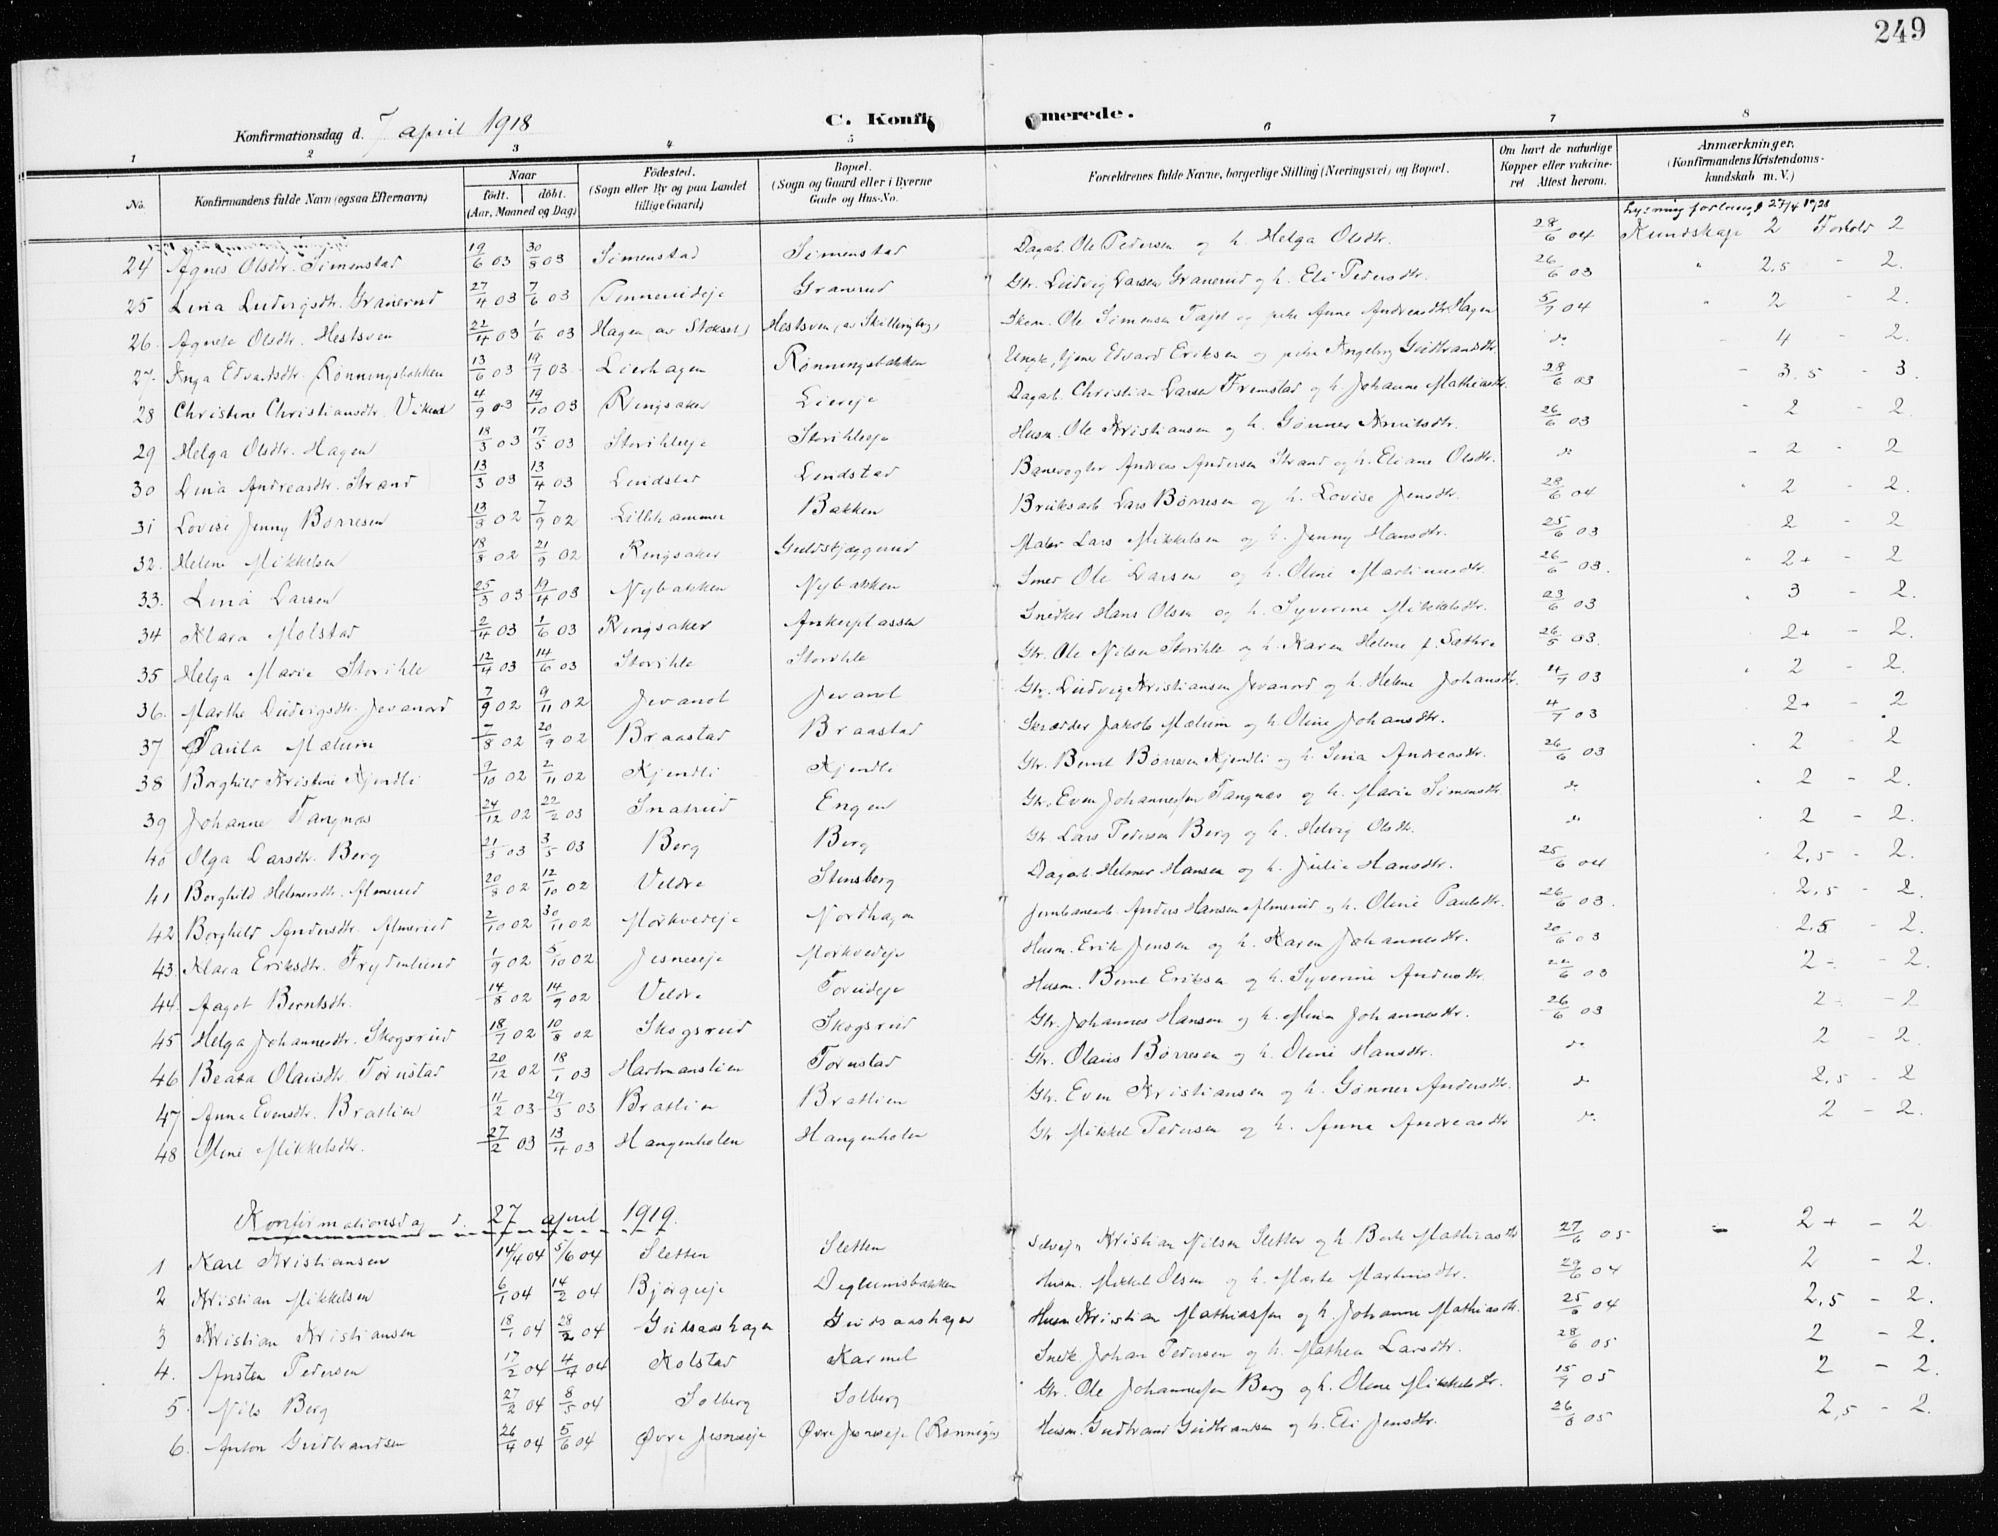 249
Konfirmationsdag d. 7 april 1918
C. Konfi
merede.
1 2 3 4 5 6 7 8
No.
Konfirmandens fulde Navn (ogsaa Efternavn)
Naar
födt. döbt.
(Aar, Maaned og Dag)
Födested.
(Sogn eller By og paa Landet
tillige Gaard)
Bopæl.
(Sogn og Gaard eller i Byerne
Gade og Hus-No.
Forældrenes fulde Navne, borgerlige Stilling (Næringsvei) og Bopæl.
Om havt de naturlige
Kopper eller vakcine-
ret Attest herom.
Anmærkninger.
(Konfirmandens Kristendoms-
kundskab m. V.)
24 Agnes Olsdtr. Simenstad 19/6 03 30/8 03 Simenstad Simenstad Dagarb. Ole Pedersen og h. Helga Olsdtr. 28/6 04 Kundskap 2 Forhold 2
25 Lina Ludvigsdtr. Granerud 27/4 03 7/6 03 Granerud Gbr. Ludvig Larsen Granerud og h. Eli Pedersdtr. 26/6 03 2,5 - 2.
26. Agnete Olsdtr. Hestsven 22/4 03 1/6 03 Hagen (av Stokset) Hestsven (av Skillingby) Ole Simensen Tajet og pike Anne Andreasdtr. Hagen 5/7 04 2 - 2.
27. Inga Edvardsdtr. Rønningsbakken 13/6 03 19/7 03 Lierhagen Rønningsbakken Ungk., tjener Edvard Eriksen og pike Ingeborg Gudbrandsdtr. do 4 - 2.
28 Christine Christiansdtr. Viken 4/9 03 19/10 03 Ringsaker Liereje Dagarb. Christian Larsen Fremstad og h. Johanne Mathiasdtr. 28/6 03 3,5 - 3.
29 Helga Olsdtr. Hagen 18/3 03 17/5 03 Storihleeje Storihleeje Husm. Ole Kristiansen og h. Gønner Knutsdtr. 26/6 03 2 - 2.
30 Lina Andreasdtr. Strand 13/3 03 13/4 03 Lundstad Lundstad Banevogter Andreas Andersen Strand og h. Eliane Olsdtr. do 2 - 2
31 Lovise Jenny Børresen 13/8 02 7/9 02 Lillehammer Bakken Bruksarb. Lars Børresen og h. Lovise Jensdtr. 28/6 04 2 - 2.
32. Helene Mikkelsen 18/8 02 21/9 02 Ringsaker Guldskjæggerud Maler Lars Mikkelsen og h. Jenny Hansdtr. 25/6 03 2 - 2
33. Lina Larsen 25/3 03 19/4 03 Nybakken Nybakken Smed Ole Larsen og h. Oline Martinusdtr. 26/6 03. 2+ - 2
34 Klara Molstad 2/4 03 1/6 03 Ringsaker Ankerplassen Snedker Hans Olsen og h. Syverine Mikkelsdtr. 23/6 03 3 - 2.
35 Helga Marie Storihle 12/4 03 14/6 03 Storihle Storihle Gbr. Ole Nilsen Storihle og h. Karen Helene f. Sathre 26/5 03. 2+ - 2.
36. Marthe Ludvigsdtr. Jevanord 7/9 02 9/11 02 Jevanol Jevanol Gbr. Ludvig Kristiansen Jevanord og h. Helene Johansdtr. 4/7 03 2 - 2.
37 Paula Mælum 7/8 02 20/9 02 Braastad Braastad Skrædder Jakob Mælum og h. Oline Johansdtr. 4/7 03 2+ - 2
38 Borghild Kristine Kjendli 9/10 02 2/11 02 Kjendli Kjendli Gbr. Bernt Børresen Kjendli og h. Lina Andreasdtr. 26/6 03 2 - 2
39 Johanne Tangnæs 24/12 02 22/2 03 Snarud Engen Gbr. Even Johannessen Tangnæs og h. Marie Simensdtr. do 2 - 2.
40 Olga Larsdtr. Berg 21/3 03 3/5 03 Berg Berg Gbr. Lars Pedersen Berg og h. Helvig Olsdtr. do 2 - 2.
41 Borghild Helmersdtr. Almerud 20/8 02 12/10 02 Veldre Stensberg Dagarb. Helmer Hansen og h. Julie Hansdtr. 25/6 04 2,5 - 2.
42 Borghild Andersdtr. Almerud 2/10 02 30/11 02 Mørkvedeje Nordhagen Jernbanearb. Anders Hansen Almerud og h. Oline Paulsdtr. 26/6 03. 2,5 - 2.
43. Klara Eriksdtr. Frydenlund 1/9 02 5/10 02 Jesneseje Mørkvedeje Husm. Erik Jensen og h. Karen Johannesdtr. 20/6 03 2,5 - 2.
44. Aagot Berntsdtr. 14/8 02 14/9 02 Veldre Torudeje Husm. Bernt Eriksen og h. Syverine Andersdtr. 22/6 03 2- - 2.
45 Helga Johannesdtr. Skogsrud 18/7 02 10/8 02 Skogsrud Skogsrud Gbr. Johannes Hansen og h. Mina Johannesdtr. 26/6 03 2- - 2
46 Beata Olausdtr. Torustad 20/12 02 18/1 03 Hartmanslien Torustad Gbr. Olaus Børresen og h. Oline Hansdtr. do 2 - 2.
47 Anna Evensdtr. Bratlien 11/2 03 29/3 03 Bratlien Bratlien Gbr. Even Kristiansen og h. Gønner Andersdtr. do 2,5 - 2
48 Oline Mikkelsdtr. 27/2 03 13/4 03 Hangenholen Hangenholen Gbr Mikkel Pedersen og h. Anna Andreasdtr do. 2 - 2.
Konfirmationsdag d. 27 april 1919.
1 Karl Kristiansen 14/4 04 5/6 04 Sletten Sletten Selvejer Kristian Nilsen Sletten og h. Berte Mathiasdtr 27/6 05 2+ - 2.
2 Kristian Mikkelsen 6/1 04 14/2 04 Bjørgeeje Deglumsbakken Husm. Mikkel Olsen og h. Marte Martinusdtr. 29/6 04 2 - 2.
3 Kristian Kristiansen 18/1 04 28/2 04 Gudsaashagen Gudsaashagen Husm Kristian Mathiassen og h. Johanne Mathiasdtr. 25/6 04 2,5 - 2.
4. Ansten Pedersen 17/2 04 4/4 04 Kolstad Karmel Snedk. Johan Pedersen og h. Mathea Larsdtr. 28/6 05 2 - 2.
5. Nils Berg 27/2 04 8/5 04 Solberg Solberg Gbr. Ole Johannessen Berg og h. Oline Mikkelsdtr. 15/7 05 2 - 2.
6. Anton Gudbrandsen 26/4 04 5/6 04 Øvre Jesneseje Øvre Jesneseje (Rønningen) Husm. Gudbrand Gudbrandsen og h. Eli Jensdtr. 26/8 05 2,5 - 2.